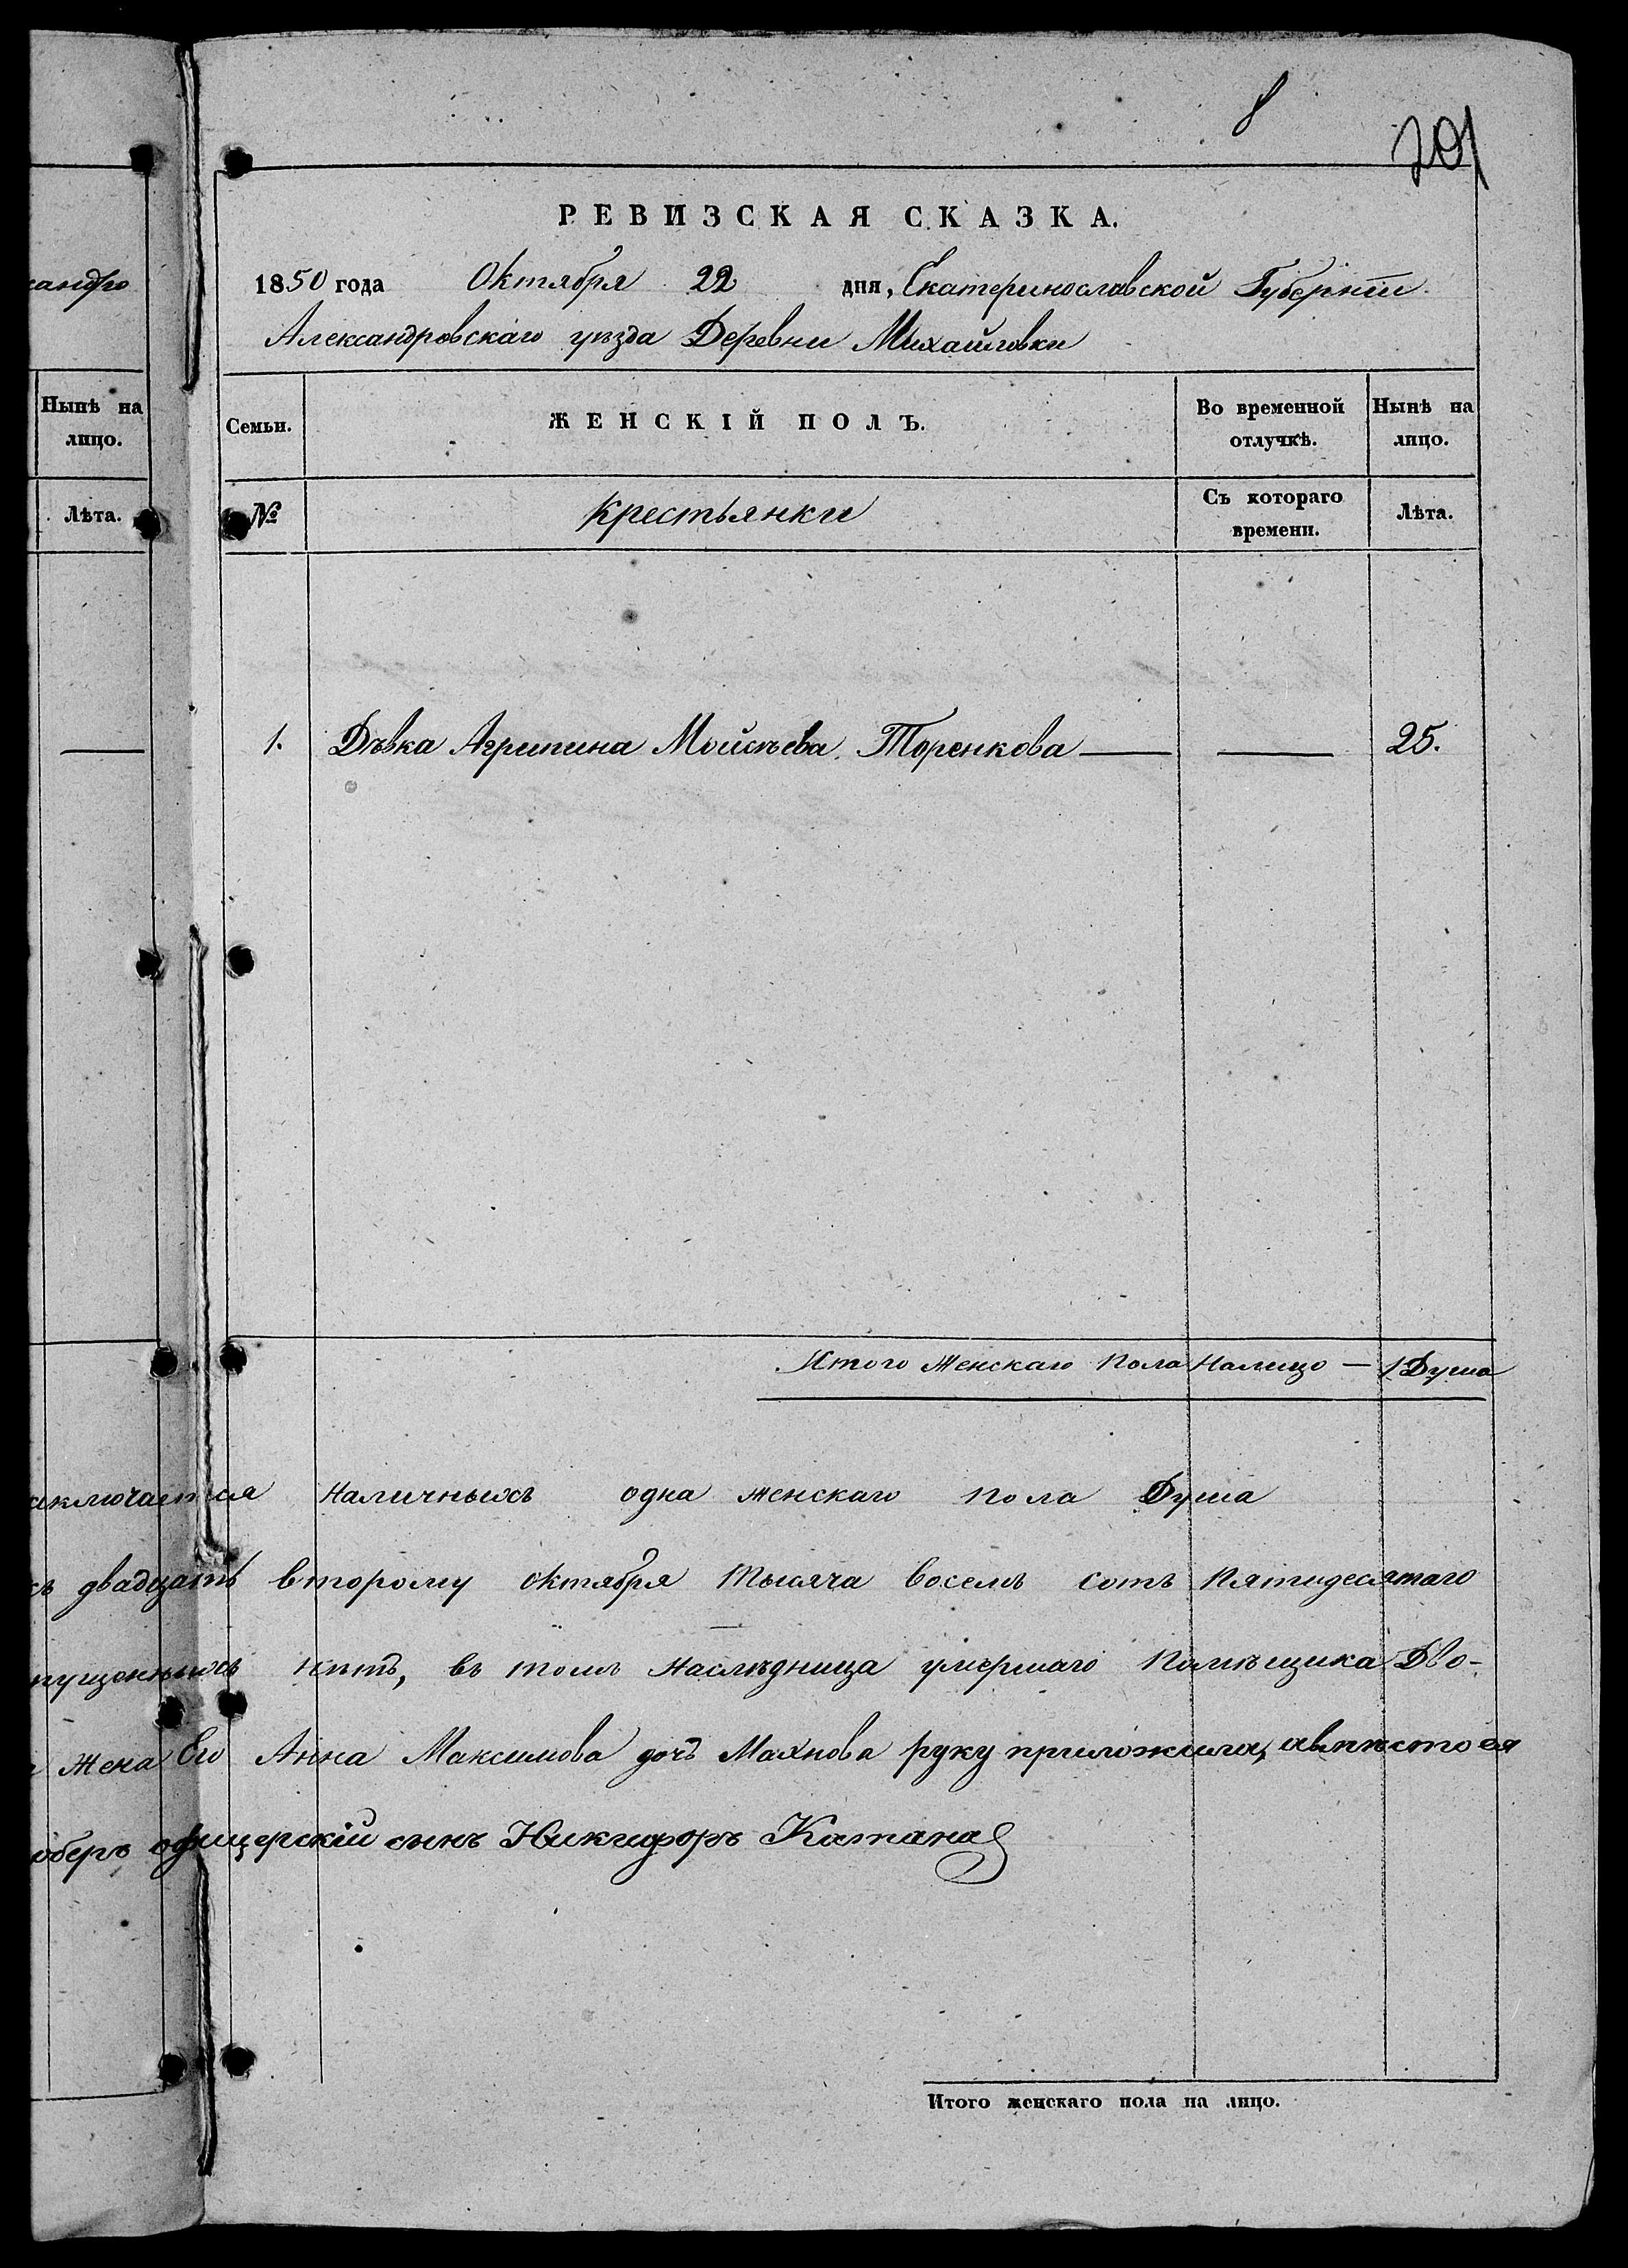 8
201
РЕВИЗСКАЯ СКАЗКА.
1850 года Октября 22 дня, Екатеринославской Губерніи
Александровскаго уѣзда Деревни Михайловки
Нынѣ на лицо.
Лѣта.
Семьи. ЖЕНСКІЙ ПОЛЪ. Во временной отлучкѣ. Нынѣ на лицо.
№ Крестьянки Съ котораго времени. Лѣта.
1. Дѣвка Агрипина Мойсѣева Торенкова — — 25.
Итого Женскаго Пола Налицо — 1 Душа
наличныхъ одна женскаго пола Душа
двадцать второму октября тысяча восемъ сотъ пятидесятаго
нѣтъ, въ томъ наслѣдница умершаго Помѣщика Дво-
жена Его Анна Максимова дочь Махнова руку приложила, авмѣсто ея
оберъ офицерскій сынъ Никифоръ Катана
Итого женскаго пола на лицо.